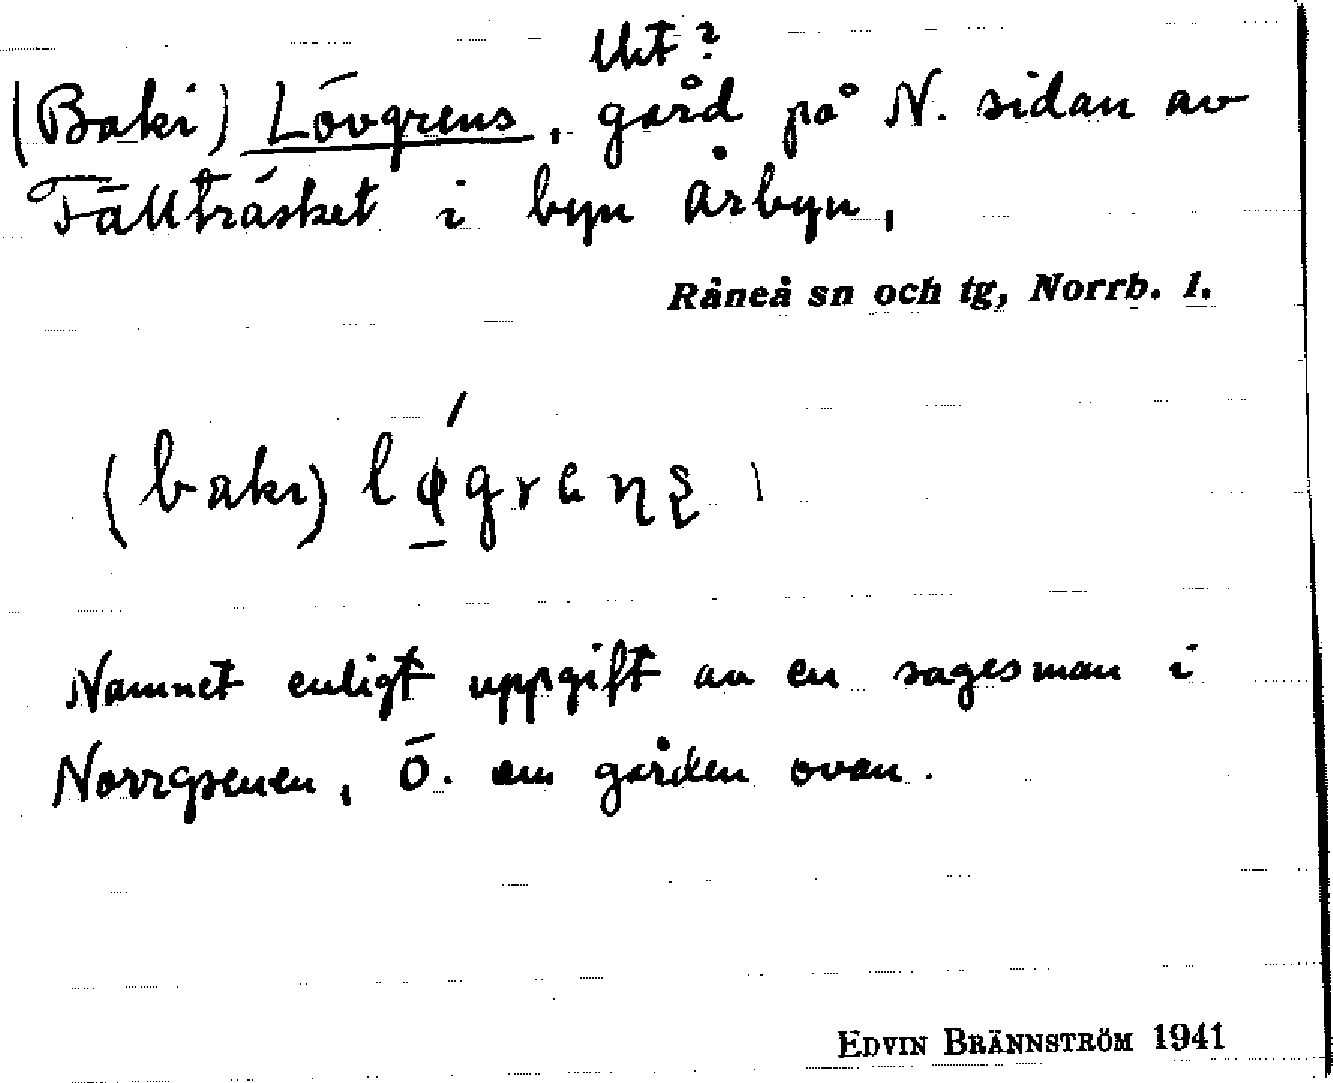 Ukt?
(Baki) Lövgrens, gård på N. sidan av
Fällträsket i byn Årbyn,
Råneå sn och tg, Norrb. l.
(baki)
Namnet enligt uppgift av en sagesman i
Norrgrenen, Ö. om gården ovan.
EDVIN BRÄNNSTRÖM 1941